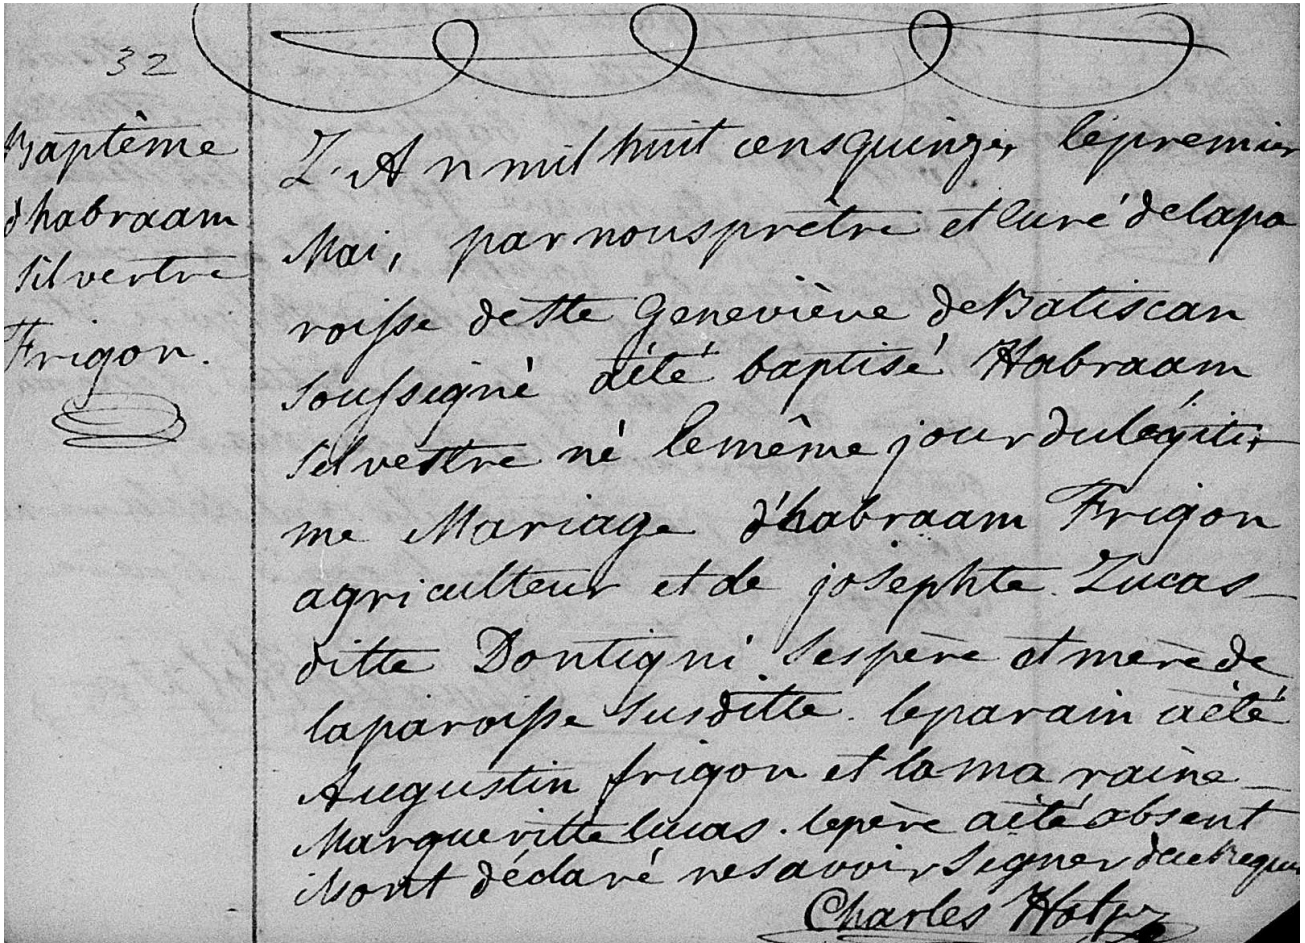 32
Baptême
d'habraam
Silvertre
Frigon.
L'An mil huit cens quinze, le premier
Mai, par nous prêtre et Curé de la pa
roisse de Ste Geneviève de Batiscan
soussigné a été baptisé Habraam
Silvestre né le même jour du légiti-
me Mariage d'habraam Frigon
agriculteur et de josephte Lucas
ditte Dontigni Ses père et mère de
la paroisse susditte. le parain a été
Augustin frigon et la maraine
Margueritte lucas. le père a été absent
ils ont déclaré ne savoir Signer de ce requis
Charles